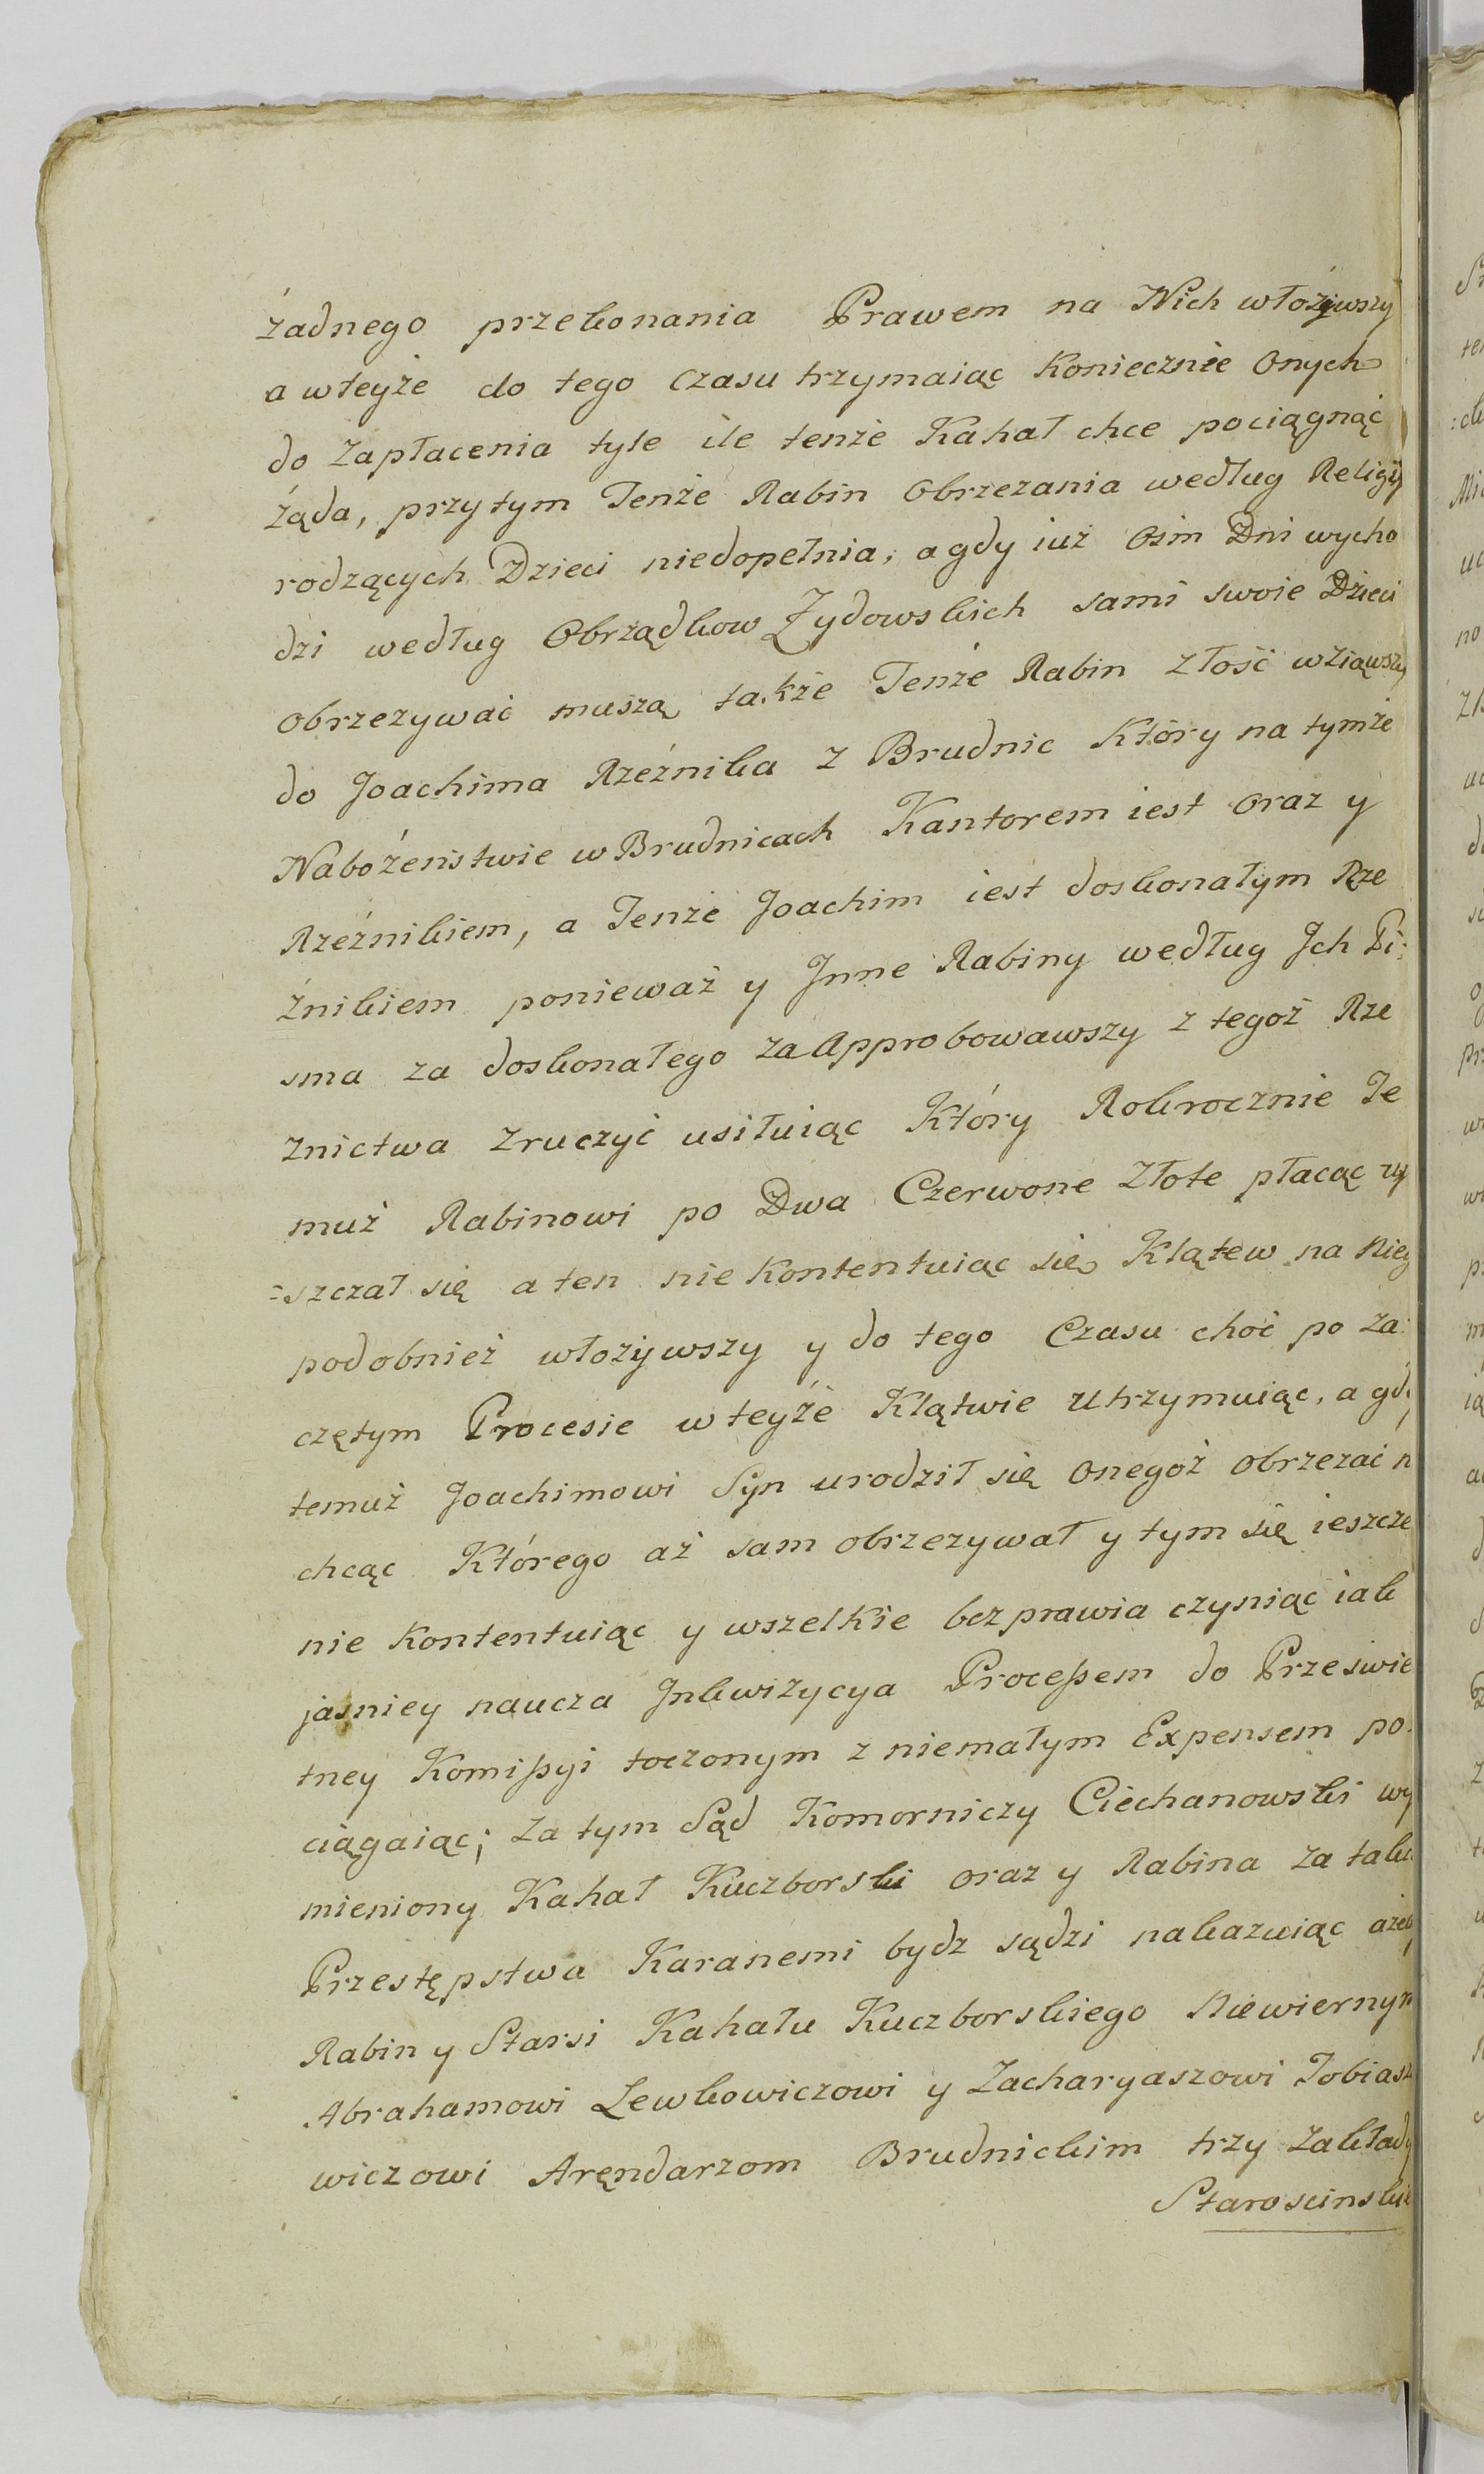 żadnego przekonania Prawem na Nich włożywszy
a wteyże do tego Czasu trzymaiąc Koniecznie Onych
do Zapłacenia tyle ile tenże Kahał chce pociągnąć
żąda, przytym Tenże Rabin Obrzezania według Religij
rodzących Dzieci niedopełnia, agdy iuż Osim Dni wycho
dzi według Obrządkow Zydowskich sami swoie Dzieci
Obrzezywać muszą, także Tenże Rabin Złość wziąwszy
do Joachima Rzeźnika z Brudnic Który na tymże
Nabożeństwie w Brudnicach Kantorem iest oraz y
Rzeźnikiem, a Tenże Joachim iest doskonałym Rze
źnikiem ponieważ y Inne Rabiny według Jch Pi:
sma za doskonałego Za Approbowawszy z tegoż Rze
znictwa Zruczyć usiłuiąc Który Rokrocznie Te
muż Rabinowi po Dwa Czerwone Złote płacąc uy
=szczał się a ten nie Kontentuiąc się, Klątew na Nieg
podobnież włożywszy y do tego Czasu choć po Za:
czętym Procesie w teyże Klątwie Utrzymuiąc, a gdy
temuż Joachimowi Syn urodził się Onegoż obrzezać n
chcąc Którego aż sam obrzezywał y tym się ieszcze
nie Kontentuiąc y wszelkie bezprawia czyniąc iak
jaśniey naucza Jnkwizycya Processem do Prześwie
tney Komissyi toczonym z niemałym Expensem po:
ciągaiąc; Za tym Sąd Komorniczy Ciechanowski wy
mieniony Kahał Kuczborski oraz y Rabina Za takie
Przestępstwa Karanemi bydz sądzi nakazuiąc ażeby
Rabin y Starsi Kahału Kuczborskiego Niewiernym
Abrahamowi Lewkowiczowi y Zacharyaszowi Tobiasz
wiczowi Arendarzom Brudnickim trzy Zakłady
Staroscinskie